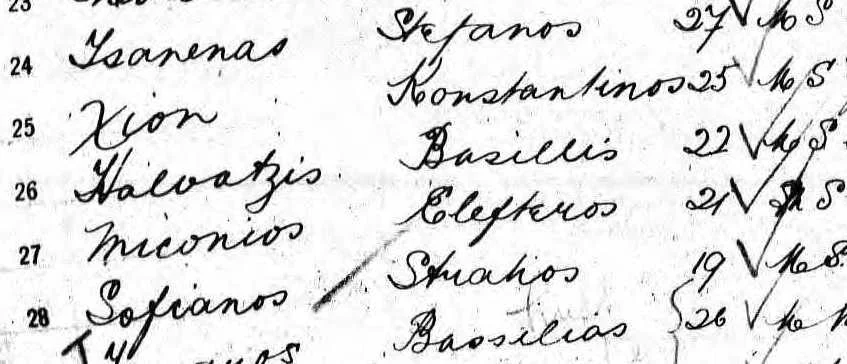 23
24 Tsanenas Stefanos 27 M S
25 Xion Konstantinos 25 M S
26 Halvatzis Basillis 22 M S
27 Miconios Elefteros 21 M S
28 Sofianos Strahos 19 M S
Bassilias 26 M